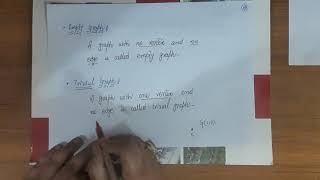 Empty graph:
A graph with no vertex and no
edge is called empty graph.
Trivial graph:
A graph with one vertex and
no edge is called trivial graph.